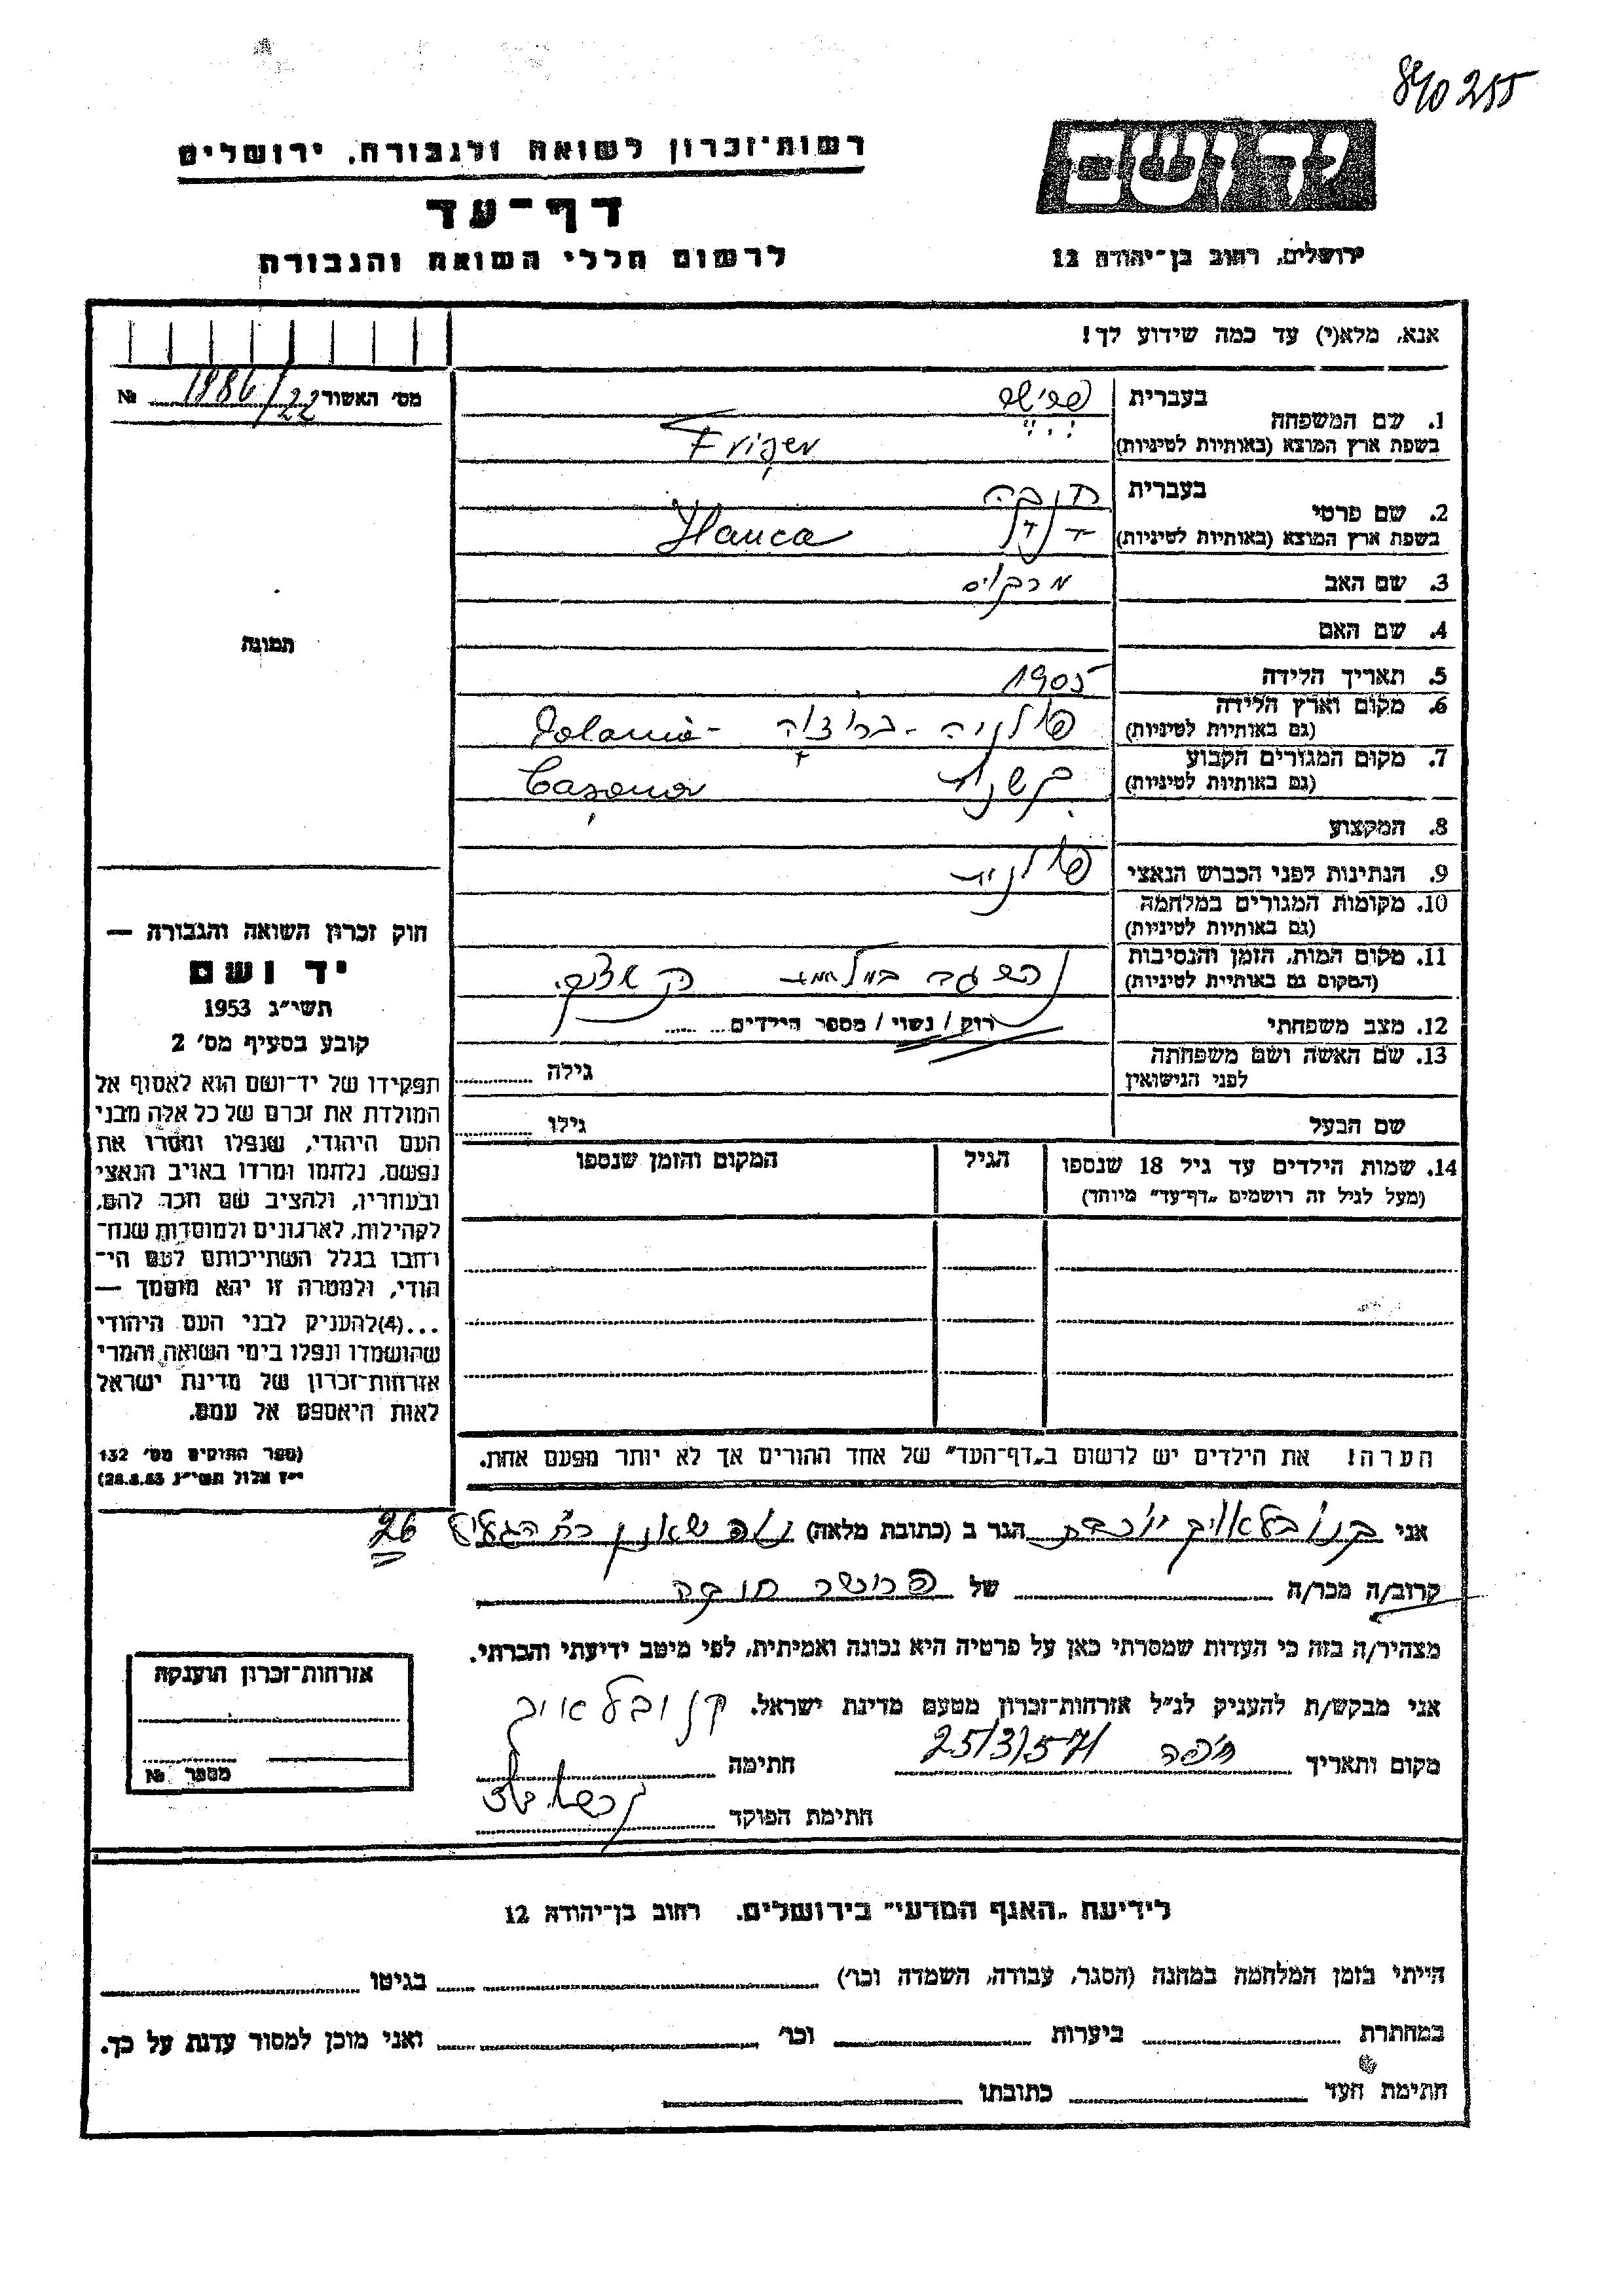 840255
יד ושם
ירושלים, רחוב בן־יהודה 12
רשות־זכרון לשואה ולגבורה, ירושלים
דף־עד
לרשום חללי השואה והגבורה
אנא, מלא(י) עד כמה שידוע לך!
מס' האשור 1986/22 №
תמונה
1. שם המשפחה
בעברית
בשפת ארץ המוצא (באותיות לטיניות) Frişer
2. שם פרטי
בעברית חנקה
בשפת ארץ המוצא (באותיות לטיניות) Hanca
3. שם האב מרקוס
4. שם האם
5. תאריך הלידה 1905
6. מקום וארץ הלידה
(גם באותיות לטיניות) פולניה - Polania
7. מקום המגורים הקבוע
(גם באותיות לטיניות)
8. המקצוע
9. הנתינות לפני הכבוש הנאצי פולנית
10. מקומות המגורים במלחמה
(גם באותיות לטיניות)
11. מקום המות, הזמן והנסיבות
(המקום גם באותיות לטיניות)
12. מצב משפחתי רוק / נשוי / מספר הילדים
13. שם האשה ושם משפחתה
לפני הנישואין גילה
שם הבעל גילו
14. שמות הילדים עד גיל 18 שנספו
(מעל לגיל זה רושמים „דף־עד” מיוחד)
הגיל
המקום והזמן שנספו
הערה! את הילדים יש לרשום ב„דף־העד” של אחד ההורים אך לא יותר מפעם אחת.
חוק זכרון השואה והגבורה —
יד ושם
תשי״ג 1953
קובע בסעיף מס' 2
תפקידו של יד־ושם הוא לאסוף אל
המולדת את זכרם של כל אלה מבני
העם היהודי, שנפלו ומסרו את
נפשם, נלחמו ומרדו באויב הנאצי
ובעוזריו, ולהציב שם וזכר להם,
לקהילות, לארגונים ולמוסדות שנח־
רבו בגלל השתייכותם לעם הי־
הודי, ולמטרה זו יהא מוסמך —
...(4)להעניק לבני העם היהודי
שהושמדו ונפלו בימי השואה והמרי
אזרחות־זכרון של מדינת ישראל
לאות היאספם אל עמם.
(ספר החוקים מס' 132
י״ז אלול תשי״ג 28.8.53)
אני קנובלאויך יוכבת הגר ב (כתובת מלאה) נוה שאנן רח' הגליל 26
קרוב/ה מכר/ה של פרישר חנקה
מצהיר/ה בזה כי העדות שמסרתי כאן על פרטיה היא נכונה ואמיתית, לפי מיטב ידיעתי והכרתי.
אני מבקש/ת להעניק לנ״ל אזרחות־זכרון מטעם מדינת ישראל.
מקום ותאריך חיפה 25/3/57 חתימה קנובלאויך
חתימת הפוקד
אזרחות־זכרון הוענקה
מספר №
לידיעת „האגף המדעי” בירושלים, רחוב בן־יהודה 12
הייתי בזמן המלחמה במחנה (הסגר, עבודה, השמדה וכו') בגיטו
במחתרת ביערות וכו' ואני מוכן למסור עדות על כך.
חתימת העד כתובתו